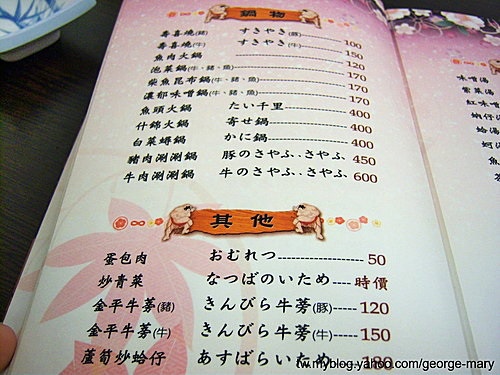 鍋物
壽喜燒(豬) すきやき(豚)
壽喜燒(牛) すきやき(牛) 100
魚肉火鍋 150
泡菜鍋(牛、豬、魚) 120
柴魚昆布鍋(牛、豬、魚) 170
濃郁味噌鍋(牛、豬、魚) 170
魚頭火鍋 たい千里 170
什錦火鍋 寄せ鍋 400
白菜蟳鍋 かに鍋 400
豬肉涮涮鍋 豚のさやふ.さやふ 450
牛肉涮涮鍋 牛のさやふ.さやふ 600
其他
蛋包肉 おむれつ 50
炒青菜 なつばのいため 時價
金平牛蒡(豬) きんぴら牛蒡(豚) 120
金平牛蒡(牛) きんぴら牛蒡(牛) 150
蘆筍炒蛤仔 あすぱらいため 180
味噌湯
紫菜湯
蛤湯
tw.myblog.yahoo.com/george-mary